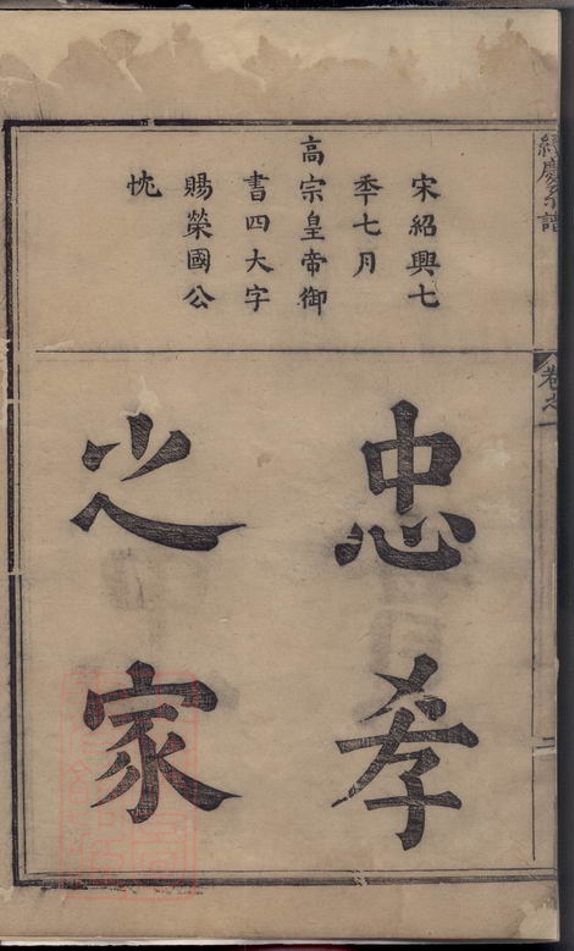 宋紹興七
秊七月
高宗皇帝御
書四大字
賜榮國公
忱
忠孝
之家
慶系譜
卷之一